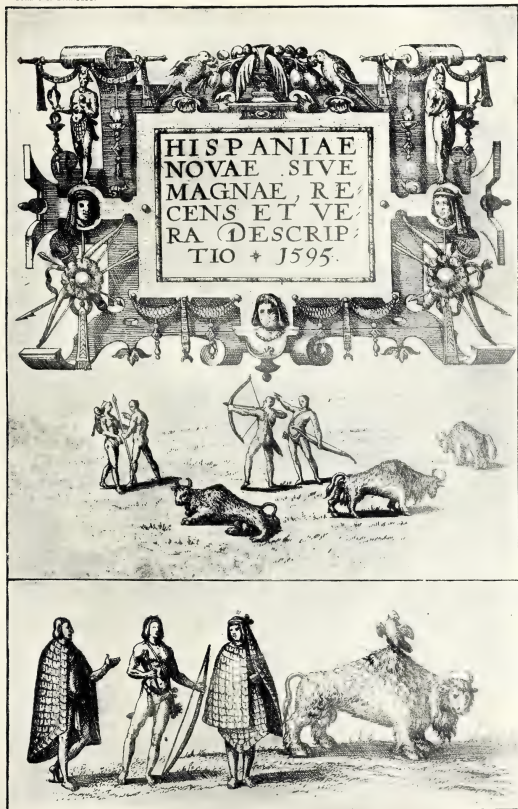 HISPANIAE
NOVAE SIVE
MAGNAE, RE⸗
CENS ET VE⸗
RA DESCRIP⸗
TIO ✦ 1595.